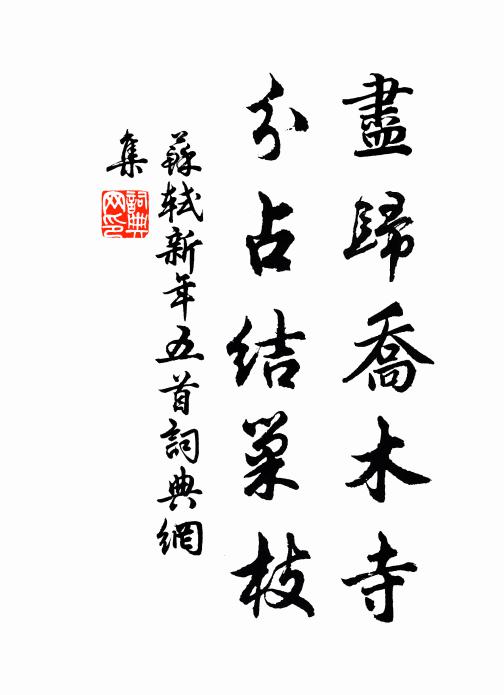 盡歸喬木寺
分占結巢枝
蘇軾新年五首詞典網
集
詞典
网印